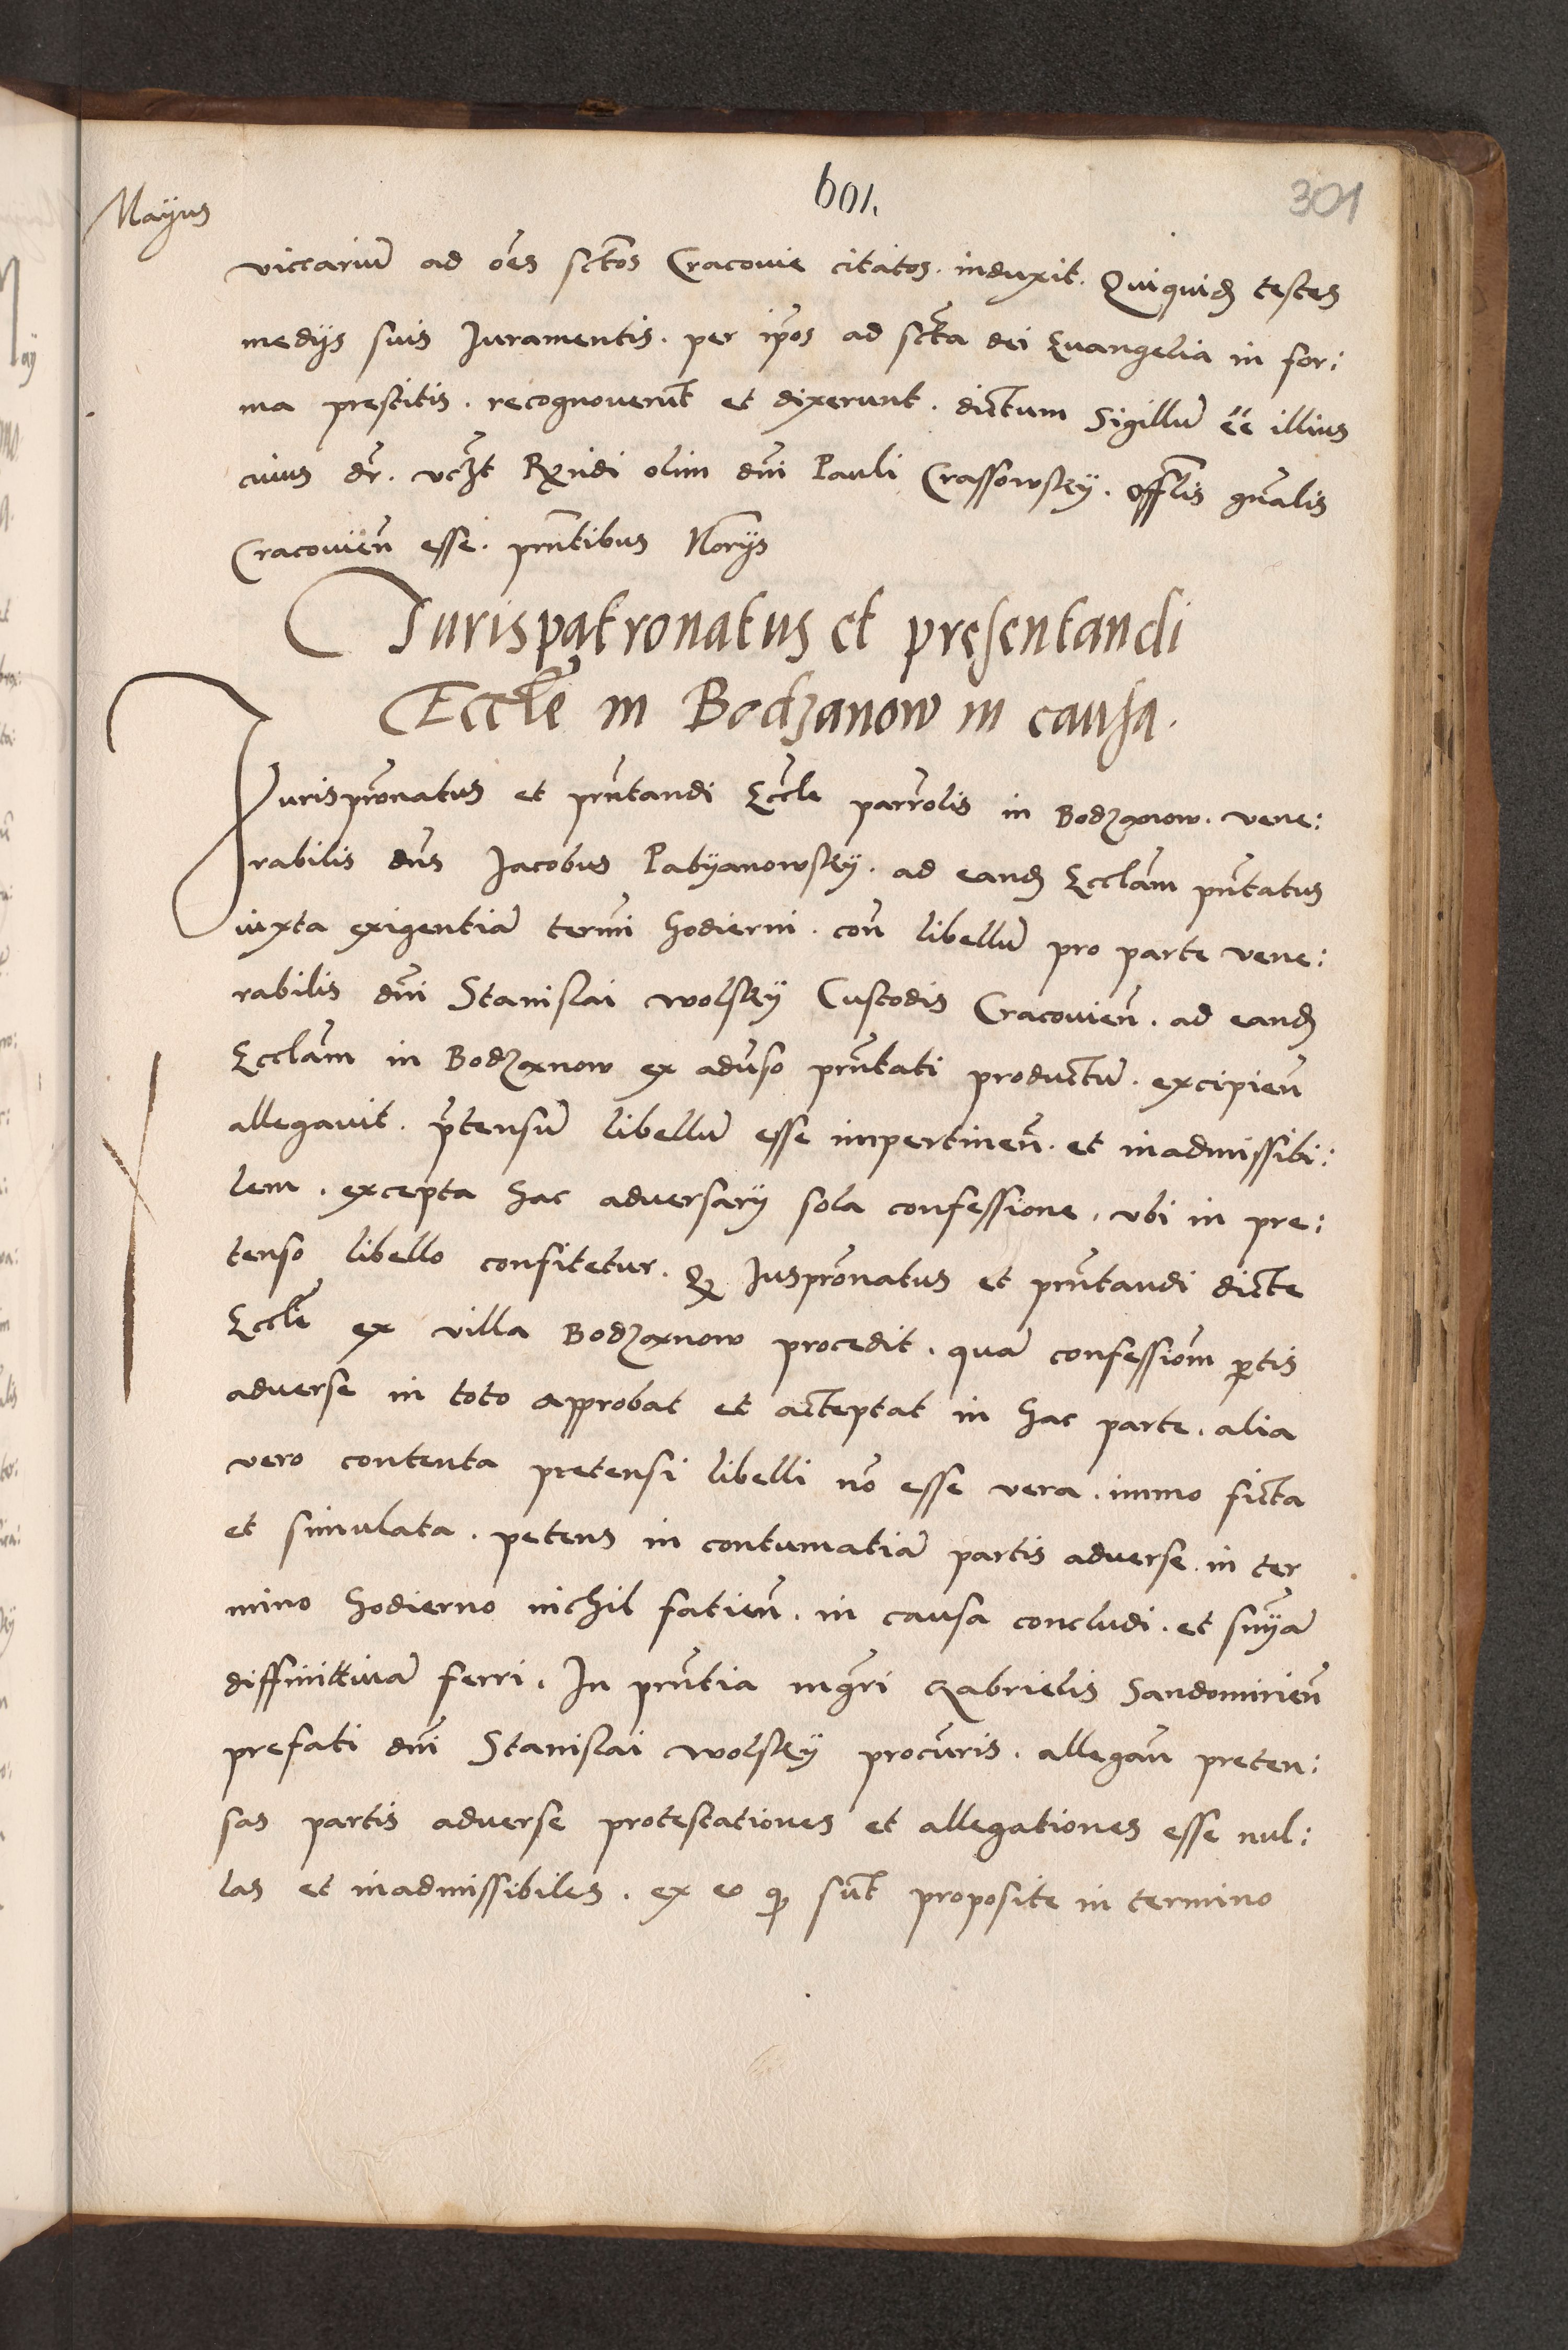 601.
301
Mayus
viccariu̅ ad o̅es sct̅os Cracovie citatos. induxit. Quiquid(em) testes
medijs suis Iuramentis. per ip̅os ad sct̅a dei Evangelia in for:
ma prestitis. recognoverut̅ et dixerunt. dictum Sigillu̅ e̅e illius
cuius dr̅. vczt̅ Rx̅ndi olim dn̅i Pauli Crassowsky. offlis̅ gn̅alis
Cracovien̅ esse. prn̅tibus Nor̅ijs
Jurispatronatus et presentandi
Eccle̅ in Bodzanow in causa.
Jurispr̅onatus et prn̅tandi Eccl̅e parr̅olis in Bodzanow. vene:
rabilis dn̅s Jacobus Pabyanowsky. ad eand(em) Eccla̅m pn̅tatus
iuxta exigentia̅ term̅i hodierni. con̅ libellu̅ pro parte vene:
rabilis dn̅i Stanislai wolsky Custodis Cracovien̅. ad eand(em)
Eccla̅m in Bodzanow ex adv̅so prn̅tati productu̅. excipien̅
allegavit. p̅tensu̅ libellu̅ esse impertinen̅. et inadmissibi:
lem. excepta hac adversarij sola confessione. vbi in pre:
tenso libello confitetur. q̅ Juspr̅onatus et prn̅tandi dicte
Eccle̅ ex villa Bodzanow procedit. qua̅ confessiom̅ p̲tis
adverse in toto approbat et acceptat in hac parte. alia
vero contenta pretensi libelli no̅ esse vera. immo ficta
et simulata. petens in contumatia̅ partis adverse. in ter
mino hodierno nichil fatien̅. in causa concludi. et sn̅ya̅
diffinittiua̅ ferri. In prn̅tia mg̅ri Gabrielis Sandomirien̅
prefati dn̅i Stanislai wolsky procur̅is. allegan̅ preten:
sas partis adverse protestationes et allegationes esse nul:
las et inadmissibiles. ex eo q̅ sut̅ proposite in termino